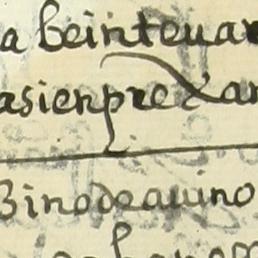 a beinteuar
asienpre Xan
Binodeauino